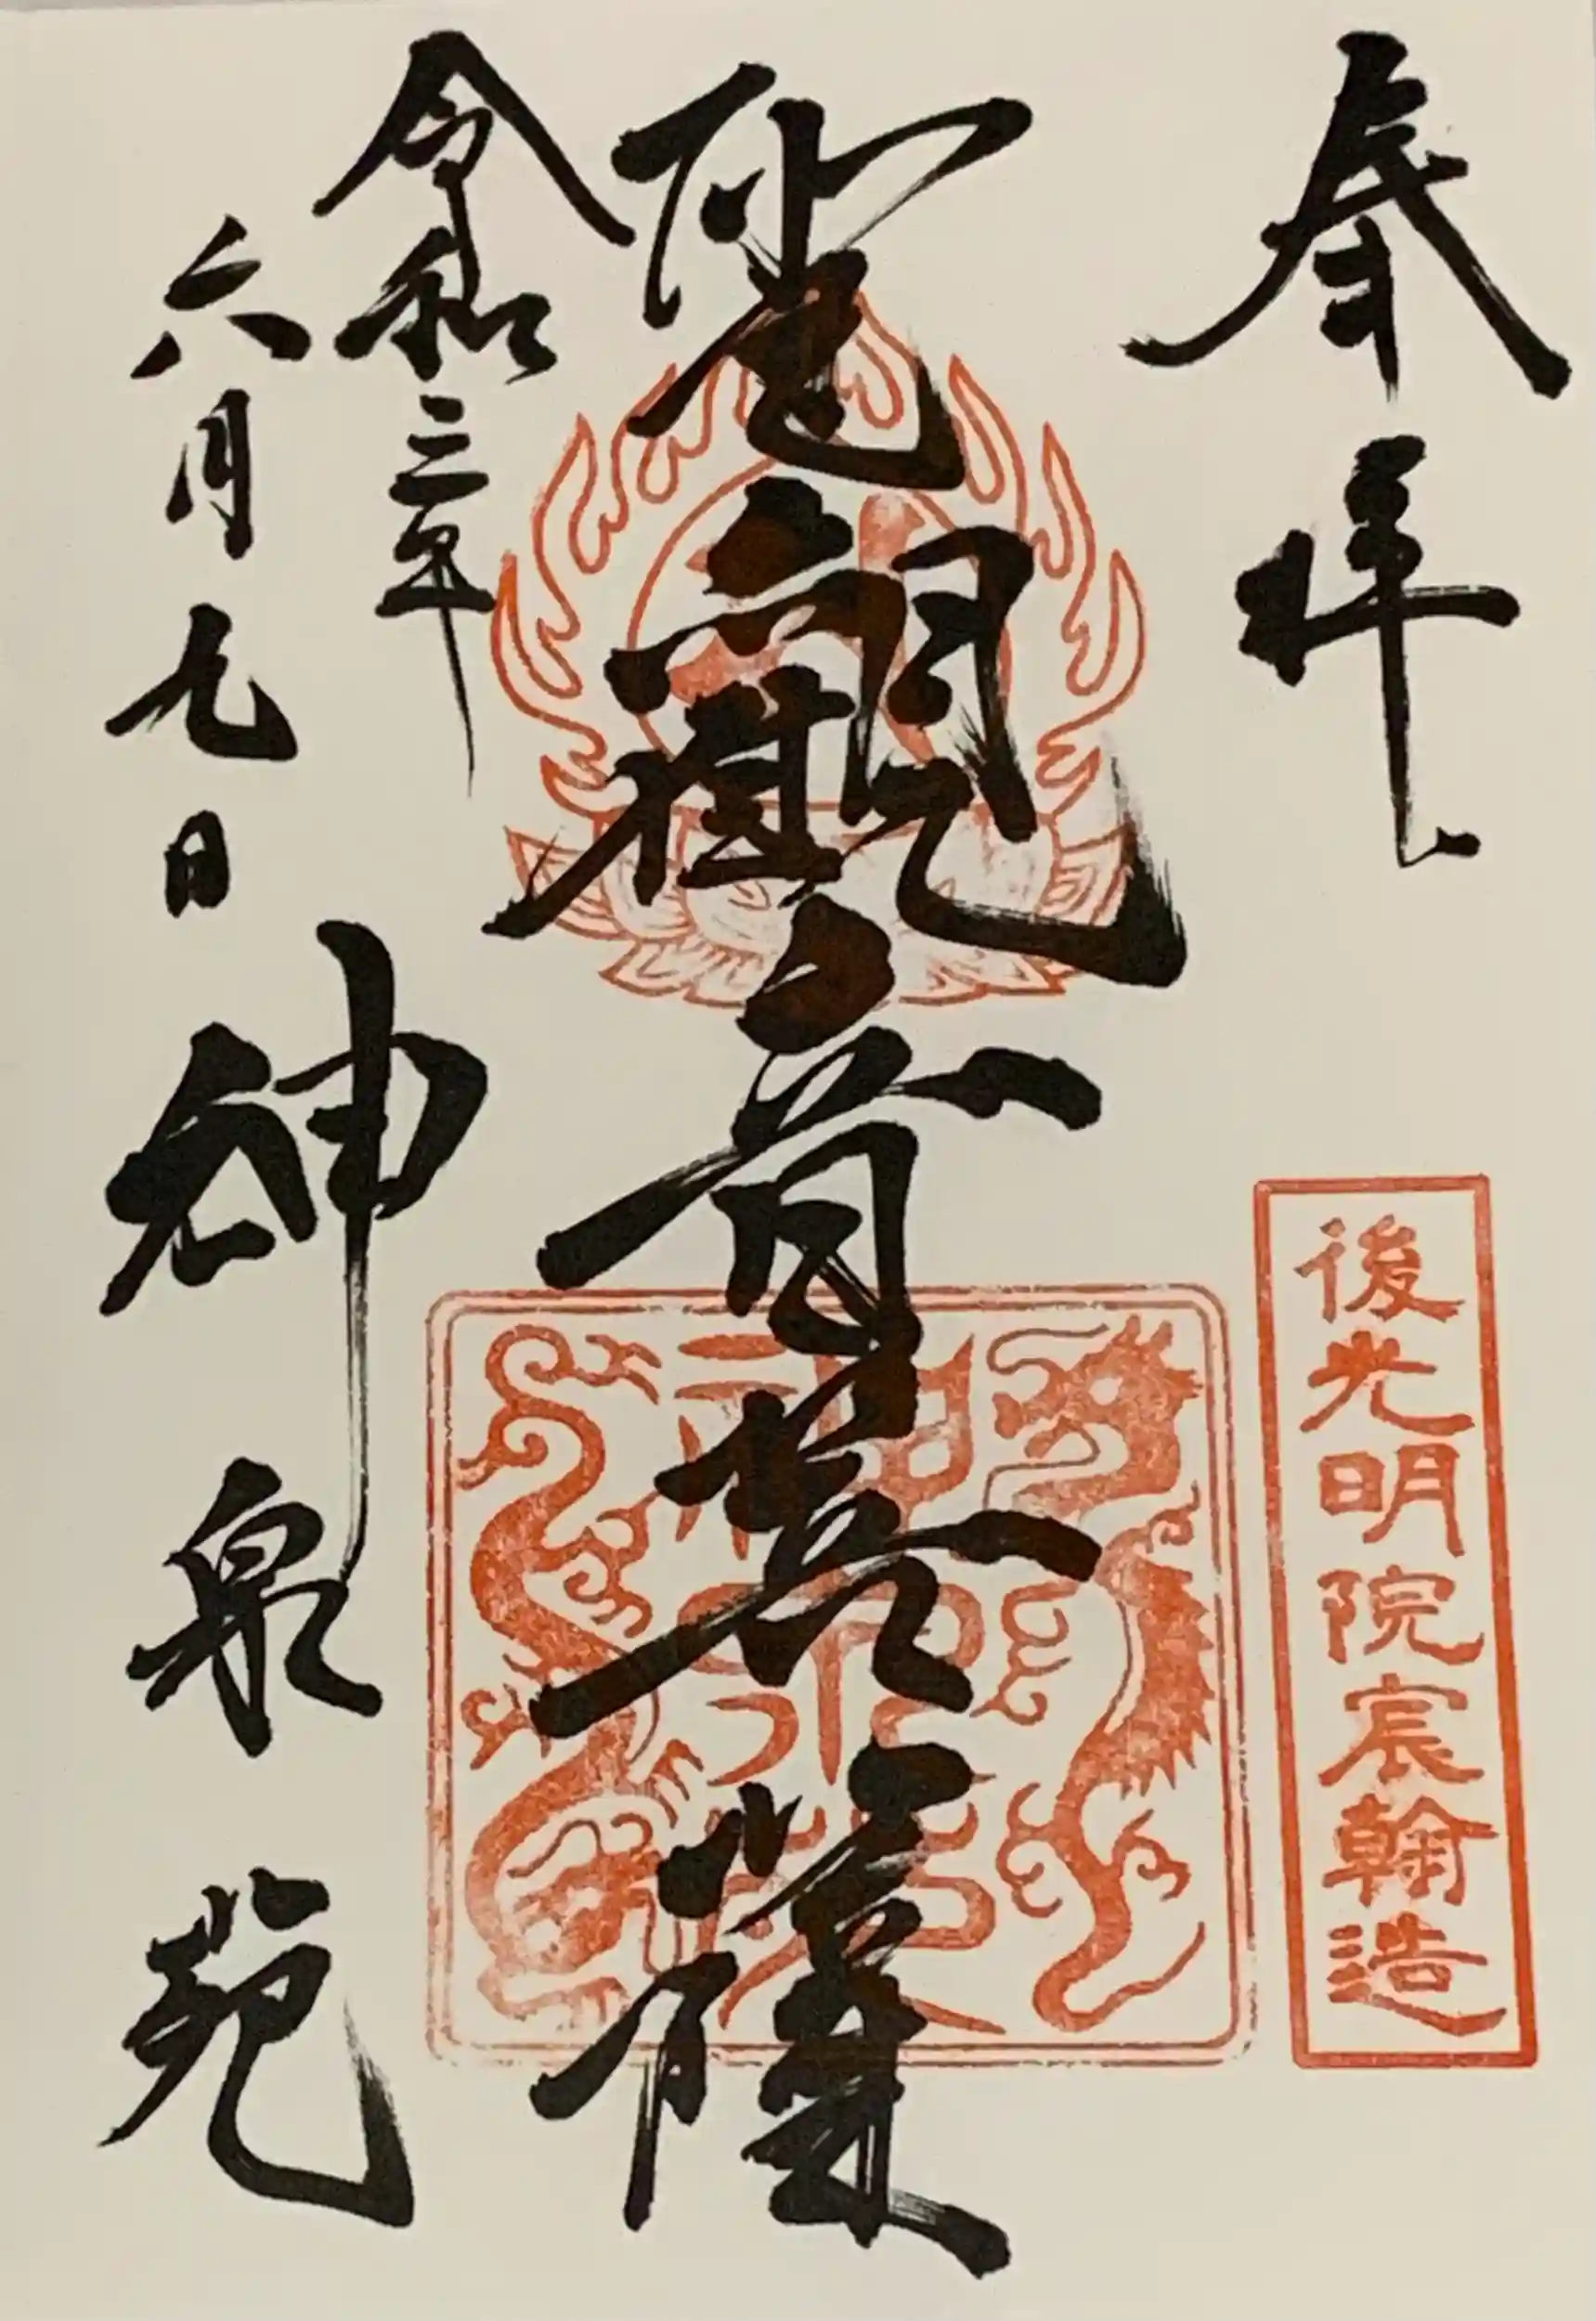 奉拝
後光明院宸翰造
聖観音菩薩
令和三年
六月九日
神泉苑
神泉苑